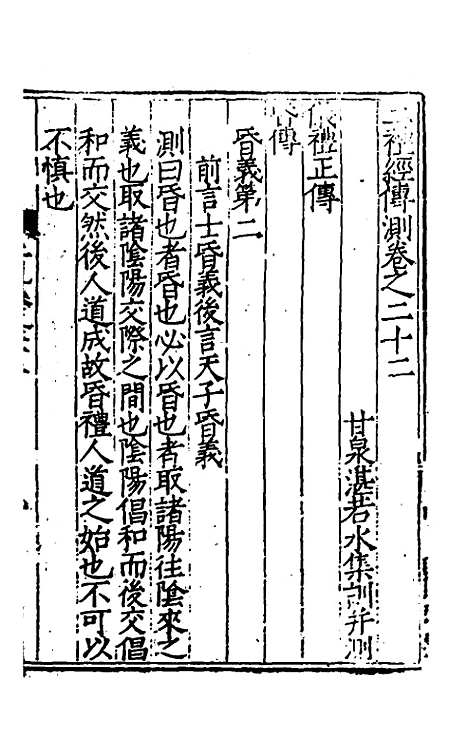 二禮經傳測卷之二十二
甘泉湛若水集訓并測
儀禮正傳
昏傳
昏義第二
前言士昏義後言天子昏義
測曰昏也者昏也必以昏也者取諸陽往陰來之
義也取諸陰陽交際之間也陰陽倡和而後交倡
和而交然後人道成故昏禮人道之始也不可以
不慎也